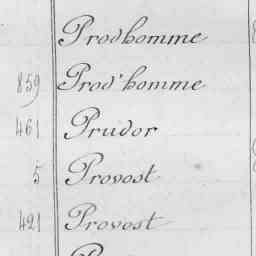 Prodhomme
859 Prod'homme
461 Prudor
5 Provost
421 Provost